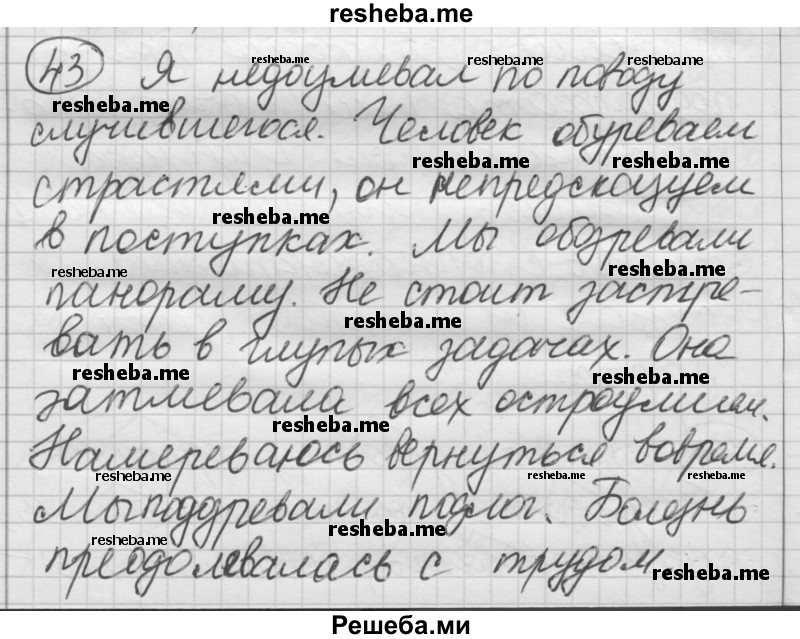 resheba.me
43 Я недоумевал по поводу
resheba.me resheba.me resheba.me
resheba.me
случившегося. Человек обуреваем
resheba.me resheba.me
страстями, он непредсказуем
resheba.me
в поступках. Мы обозревали
resheba.me resheba.me
панораму. Не стоит застре-
resheba.me
вать в глупых задачах. Она
resheba.me resheba.me
затмевала всех остроумием.
resheba.me
Намереваюсь вернуться вовремя.
resheba.me resheba.me resheba.me
Мы поддревали подлог. Болезнь
resheba.me resheba.me
преодолевалась с трудом.
resheba.me
Решеба.ми